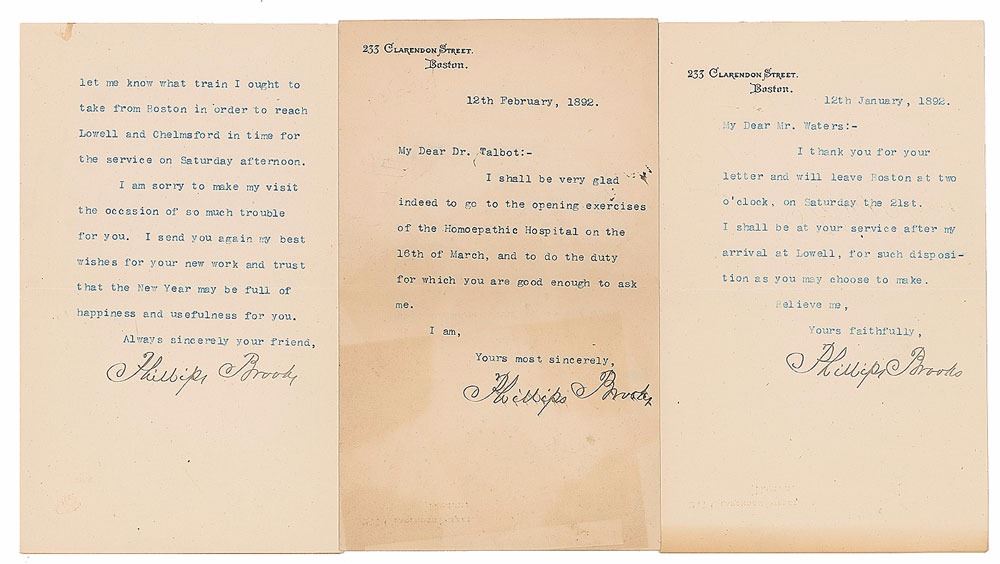 let me know what train I ought to
take from Boston in order to reach
Lowell and Chelmsford in time for
the service on Saturday afternoon.
I am sorry to make my visit
the occasion of so much trouble
for you. I send you again my best
wishes for your new work and trust
that the New Year may be full of
happiness and usefulness for you.
Always sincerely your friend,
Phillips Brooks
233 Clarendon Street.
Boston.
12th February, 1892.
My Dear Dr. Talbot:-
I shall be very glad
indeed to go to the opening exercises
of the Homoepathic Hospital on the
16th of March, and to do the duty
for which you are good enough to ask
me.
I am,
Yours most sincerely,
Phillips Brooks
233 Clarendon Street.
Boston.
12th January, 1892.
My Dear Mr. Waters:-
I thank you for your
letter and will leave Boston at two
o'clock, on Saturday the 21st.
I shall be at your service after my
arrival at Lowell, for such disposi-
tion as you may choose to make.
Believe me,
Yours faithfully,
Phillips Brooks